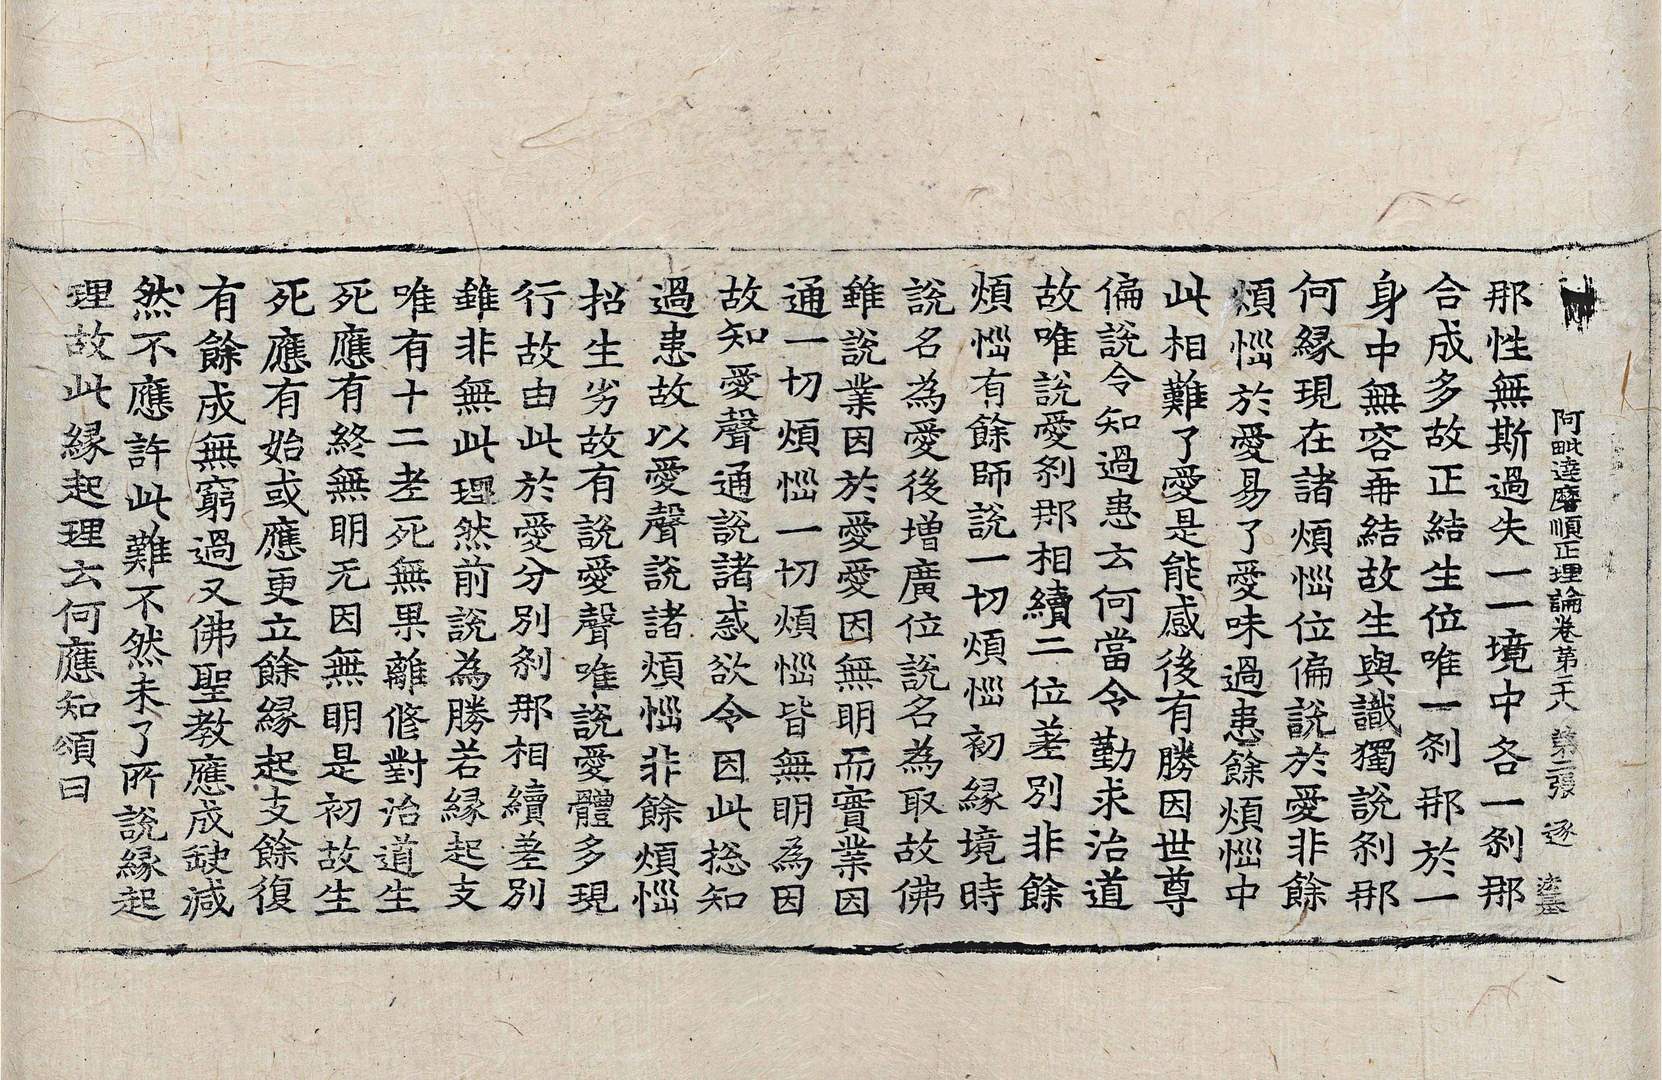 阿毗達磨順正理論卷第二十八 第二張 逐
那性無斯過失一一境中各一剎那
合成多故正結生位唯一剎那於一
身中無容再結故生與識獨說剎那
何緣現在諸煩惱位偏說於愛非餘
煩惱於愛易了愛味過患餘煩惱中
此相難了愛是能感後有勝因世尊
偏說令知過患云何當令勤求治道
故唯說愛剎那相續二位差別非餘
煩惱有餘師說一切煩惱初緣境時
說名為愛後增廣位說名為取故佛
雖說業因於愛愛因無明而實業因
通一切煩惱一切煩惱皆無明為因
故知愛聲通說諸惑欲令因此捴知
過患故以愛聲說諸煩惱非餘煩惱
招生劣故有說愛聲唯說愛體多現
行故由此於愛分別剎那相續差別
雖非無此理然前說為勝若緣起支
唯有十二老死無果離修對治道生
死應有終無明无因無明是初故生
死應有始或應更立餘緣起支餘復
有餘成無窮過又佛聖教應成缺減
然不應許此難不然未了所說緣起
理故此緣起理云何應知頌曰